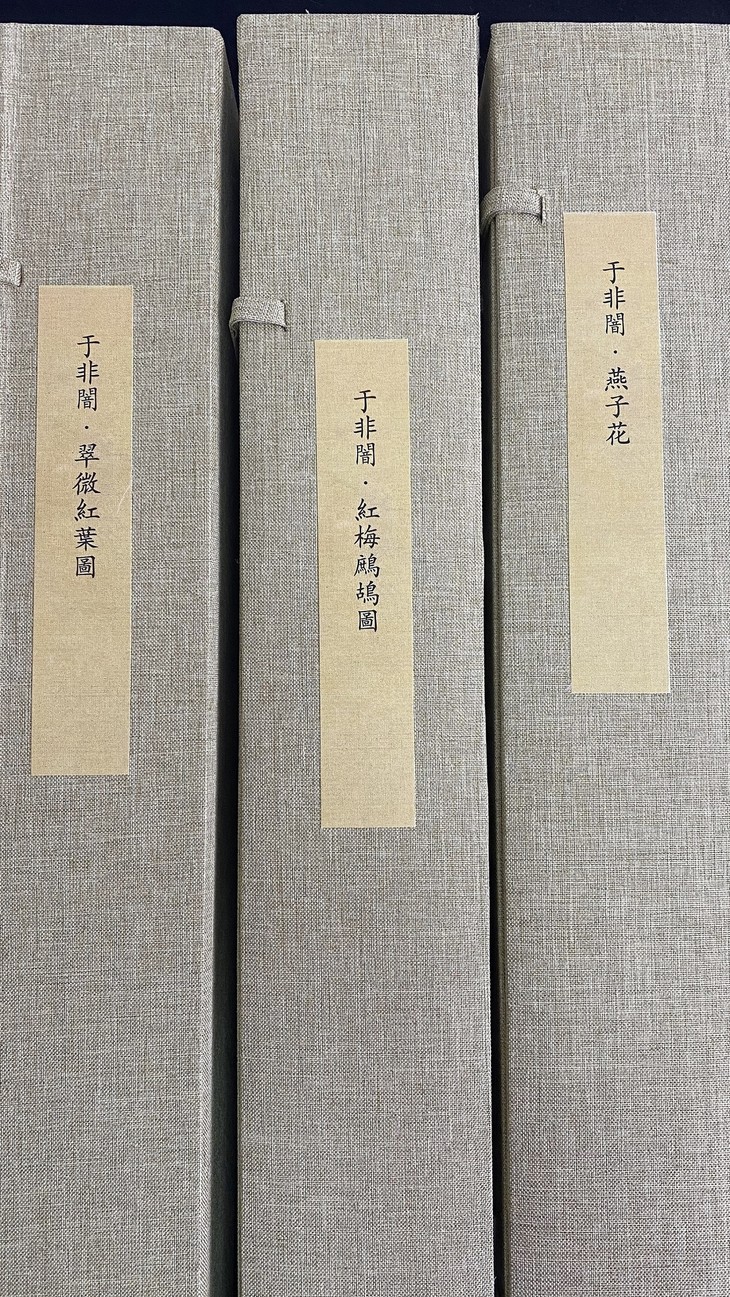 于非闇·翠微紅葉圖
于非闇·紅梅鷓鴣圖
于非闇·燕子花